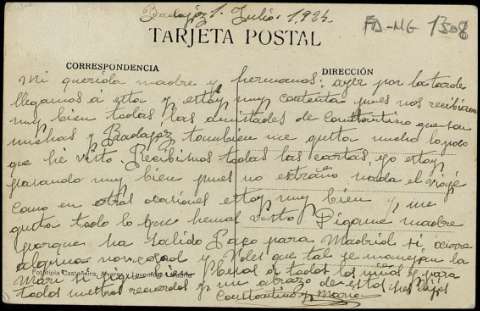 Badajoz 1. Julio. 1924.
FD-MG 1308
TARJETA POSTAL
CORRESPONDENCIA
DIRECCIÓN
Mi querida madre y hermanos: ayer por la tarde
llegamos á esta y estoy muy contenta pues nos recibieron
muy bien todas las amistades de Constantino que son
muchas y Badajoz tambien me gusta mucho lo poco
que hé visto. Recibimos todas las cartas, yo estoy
pasando muy bien pues no estraño nada el viaje
como en otras ocasiones estoy muy bien y me
gusta todo lo que hemos visto Digame madre
porque ha salido Paco para Madrid si ocurre
alguna novedad y que tal se manejan la
Mari
de todos los
para
todos nuestros recuerdos y un abrazo de estos sus hijos
Constantino y Maria